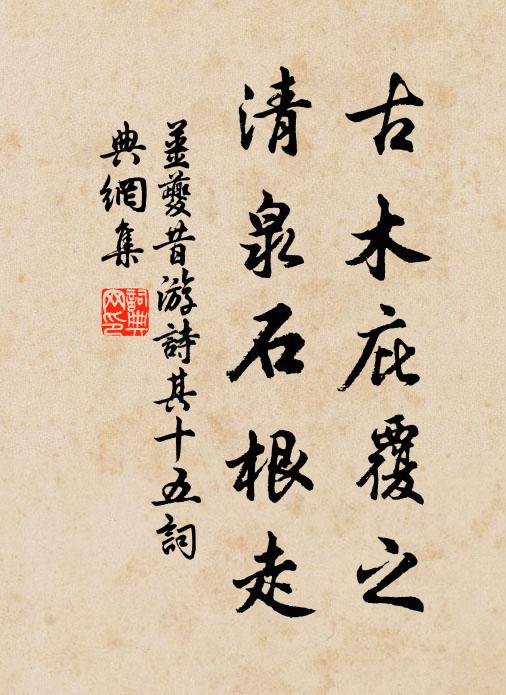 古木庇覆之
清泉石根走
姜夔昔游詩其十五詞
典網集
詞典網印